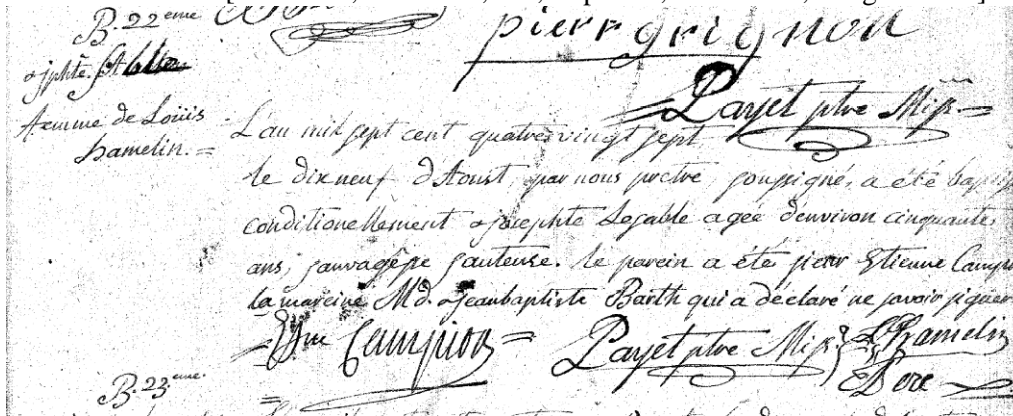 B. 22eme
pierr grignon
josphte
femme de Loüis
hamelin. =
Payet ptre Miss.
L'an mil sept cent quatre vingt sept
le dixneuf d'Aoust, par nous prctre, soussigné, a été baptis
conditionellement josephte Lesable agee d'environ cinquante
ans, sauvagesse sauteuse. le parein a été pierr Etienne Campi
la mareine Md. jeanbaptiste Barth qui a déclaré ne savoir signer
Etne Campion = Payet ptre Miss. L. hamelin
B. 23eme.